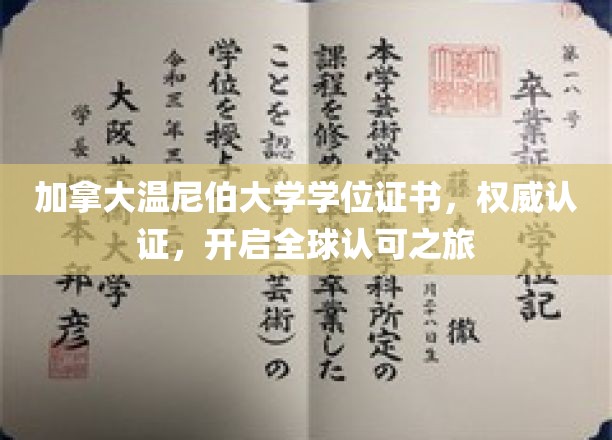 加拿大温尼伯大学学位证书，权威认
证，开启全球认可之旅
第一八号
卒業証
学位記
藤
徹
月二十八日生
本学芸術学
学科所定の
課程を修め
卒業した
ことを認め
(芸術)の
学位を授与
令和三年三月
大阪芸術大学
学長
本邦彦